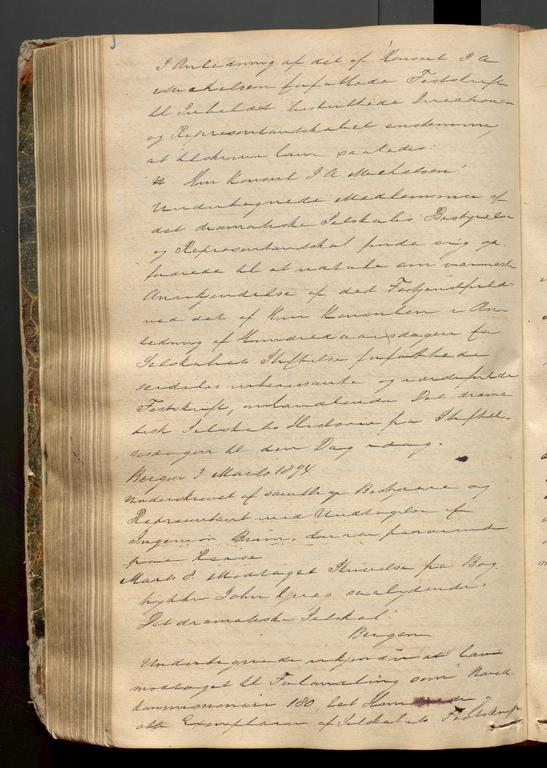 I Anledning af det af Konsul J A
Michelsen forfattede Festskrift
til Jubelåret besluttede Directionen
og Repræsentantskabet enstemmig
at tilskrive ham saaledes:
Hrr Konsul J A Michelsen
Undertegnede Medlemmer af
det dramatiske Selskabs Bestyrelse
og Repræsentantskab finde sig op
fordrede til at udtale en varmeste
Anerkjendelse af det Fortjenstfulde
ved det af Hrr Konsulen i An
ledning af Hundredaarsdagen for
Selskabets Stiftelse forfattede
særdeles interessante og værdifulde
Festskrift, omhandlende Det drama
tiske Selskabs Historie fra Stiftel
sesdagen til den Dag idag.
Bergen 3 Marts 1894
Underskrevet af samtlige Bestyrere og
Repræsentant med Undtagelse af
Ingeniør Grim, der var
fra
Marts 8 Modtaget Skrivelse fra Bog
trykker John Grieg saalydende:
Det dramatiske Selskab
Bergen
Undertegnede erkjender at have
modtaget til Forhandling som Hoved
kommissionær 180, Et Hundrede og
otti Exemplarer af Selskabets Festskrift